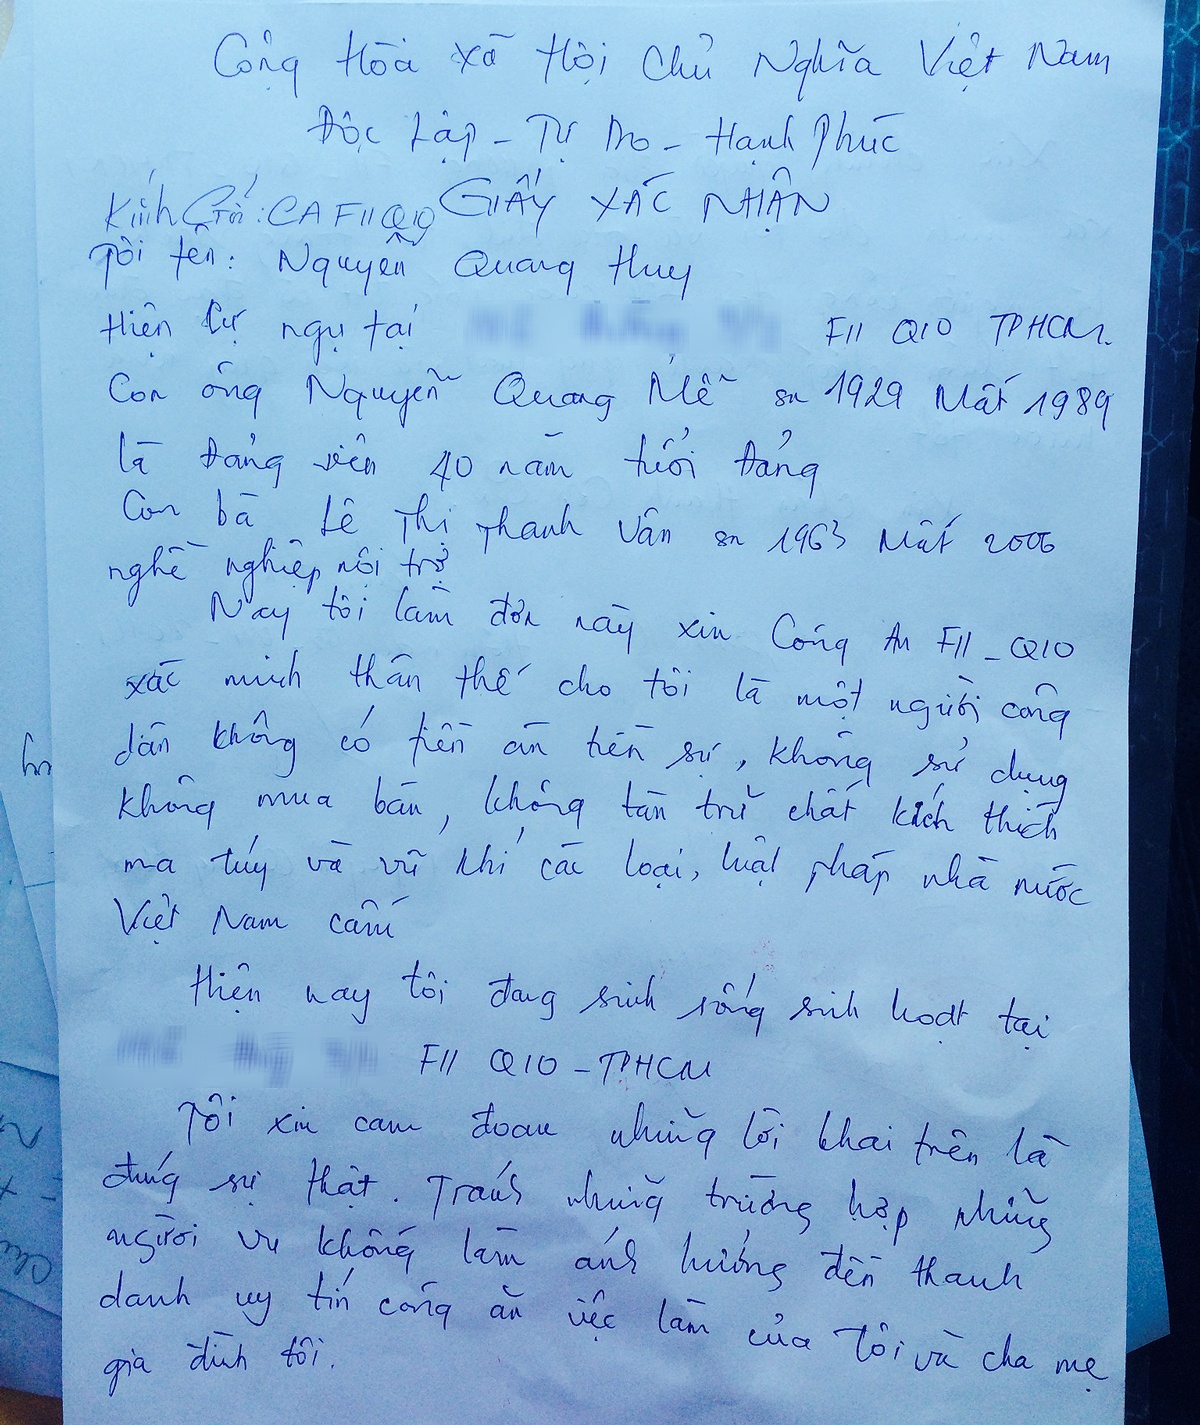 Cộng Hòa Xã Hội Chủ Nghĩa Việt Nam
Độc Lập - Tự Do - Hạnh Phúc
Kính Gởi: CA F11 Q10 GIẤY XÁC NHẬN
Tôi tên: Nguyễn Quang Huy
Hiện cư ngụ tại F11 Q10 TPHCM.
Con ông Nguyễn Quang Mễ sn 1929 Mất 1989
là Đảng viên 40 năm tuổi Đảng
Con bà Lê Thị Thanh Vân sn 1963 Mất 2006
nghề nghiệp nội trợ
Nay tôi làm đơn này xin Công An F11 - Q10
xác minh thân thế cho tôi là một người công
dân không có tiền án tiền sự, không sử dụng
không mua bán, không tàn trữ chất kích thích
ma túy và vũ khí các loại, luật pháp nhà nước
Việt Nam cấm
Hiện nay tôi đang sinh sống sinh hoạt tại
F11 Q10 - TPHCM
Tôi xin cam đoan những lời khai trên là
đúng sự thật. Tránh những trường hợp những
người vu khống làm ảnh hưởng đến thanh
danh uy tín công ăn việc làm của Tôi và cha mẹ
gia đình tôi.